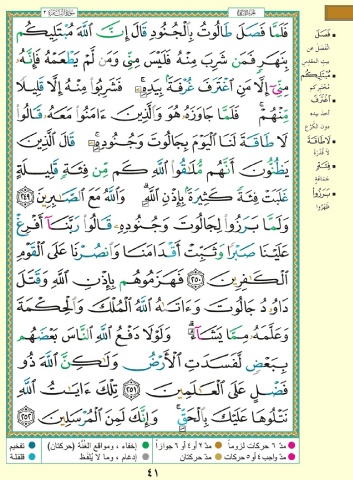 فَلَمَّا فَصَلَ طَالُوتُ بِٱلْجُنُودِ قَالَ إِنَّ ٱللَّهَ مُبْتَلِيكُم
بِنَهَرٍ فَمَن شَرِبَ مِنْهُ فَلَيْسَ مِنِّى وَمَن لَّمْ يَطْعَمْهُ فَإِنَّهُۥ
مِنِّىٓ إِلَّا مَنِ ٱغْتَرَفَ غُرْفَةًۢ بِيَدِهِۦۚ فَشَرِبُوا۟ مِنْهُ إِلَّا قَلِيلًا
مِّنْهُمْۚ فَلَمَّا جَاوَزَهُۥ هُوَ وَٱلَّذِينَ ءَامَنُوا۟ مَعَهُۥ قَالُوا۟
لَا طَاقَةَ لَنَا ٱلْيَوْمَ بِجَالُوتَ وَجُنُودِهِۦۚ قَالَ ٱلَّذِينَ
يَظُنُّونَ أَنَّهُم مُّلَٰقُوا۟ ٱللَّهِ كَم مِّن فِئَةٍ قَلِيلَةٍ
غَلَبَتْ فِئَةً كَثِيرَةًۢ بِإِذْنِ ٱللَّهِۗ وَٱللَّهُ مَعَ ٱلصَّٰبِرِينَ ٢٤٩
وَلَمَّا بَرَزُوا۟ لِجَالُوتَ وَجُنُودِهِۦ قَالُوا۟ رَبَّنَآ أَفْرِغْ
عَلَيْنَا صَبْرًا وَثَبِّتْ أَقْدَامَنَا وَٱنصُرْنَا عَلَى ٱلْقَوْمِ
ٱلْكَٰفِرِينَ ٢٥٠ فَهَزَمُوهُم بِإِذْنِ ٱللَّهِ وَقَتَلَ
دَاوُۥدُ جَالُوتَ وَءَاتَىٰهُ ٱللَّهُ ٱلْمُلْكَ وَٱلْحِكْمَةَ
وَعَلَّمَهُۥ مِمَّا يَشَآءُۗ وَلَوْلَا دَفْعُ ٱللَّهِ ٱلنَّاسَ بَعْضَهُم
بِبَعْضٍ لَّفَسَدَتِ ٱلْأَرْضُ وَلَٰكِنَّ ٱللَّهَ ذُو
فَضْلٍ عَلَى ٱلْعَٰلَمِينَ ٢٥١ تِلْكَ ءَايَٰتُ ٱللَّهِ
نَتْلُوهَا عَلَيْكَ بِٱلْحَقِّۚ وَإِنَّكَ لَمِنَ ٱلْمُرْسَلِينَ ٢٥٢
فَصَلَ
انفصل عن
بيت المقدس
مُبْتَلِيكُم
مُختبركم
اغْتَرَفَ
أخذ بيده
دون الكَرْع
لا طَاقَةَ
لا قدرة
فِئَةٍ
جماعة
بَرَزُوا
ظهروا
مدّ ٦ حركات لزوماً
مدّ ٢ أو ٤ أو ٦ جوازاً
إخفاء، ومواقع الغُنَّة (حركتان)
تفخيم
مدّ واجب ٤ أو ٥ حركات
مدّ حركتان
إدغام، وما لا يُلفَظ
قلقلة
٤١